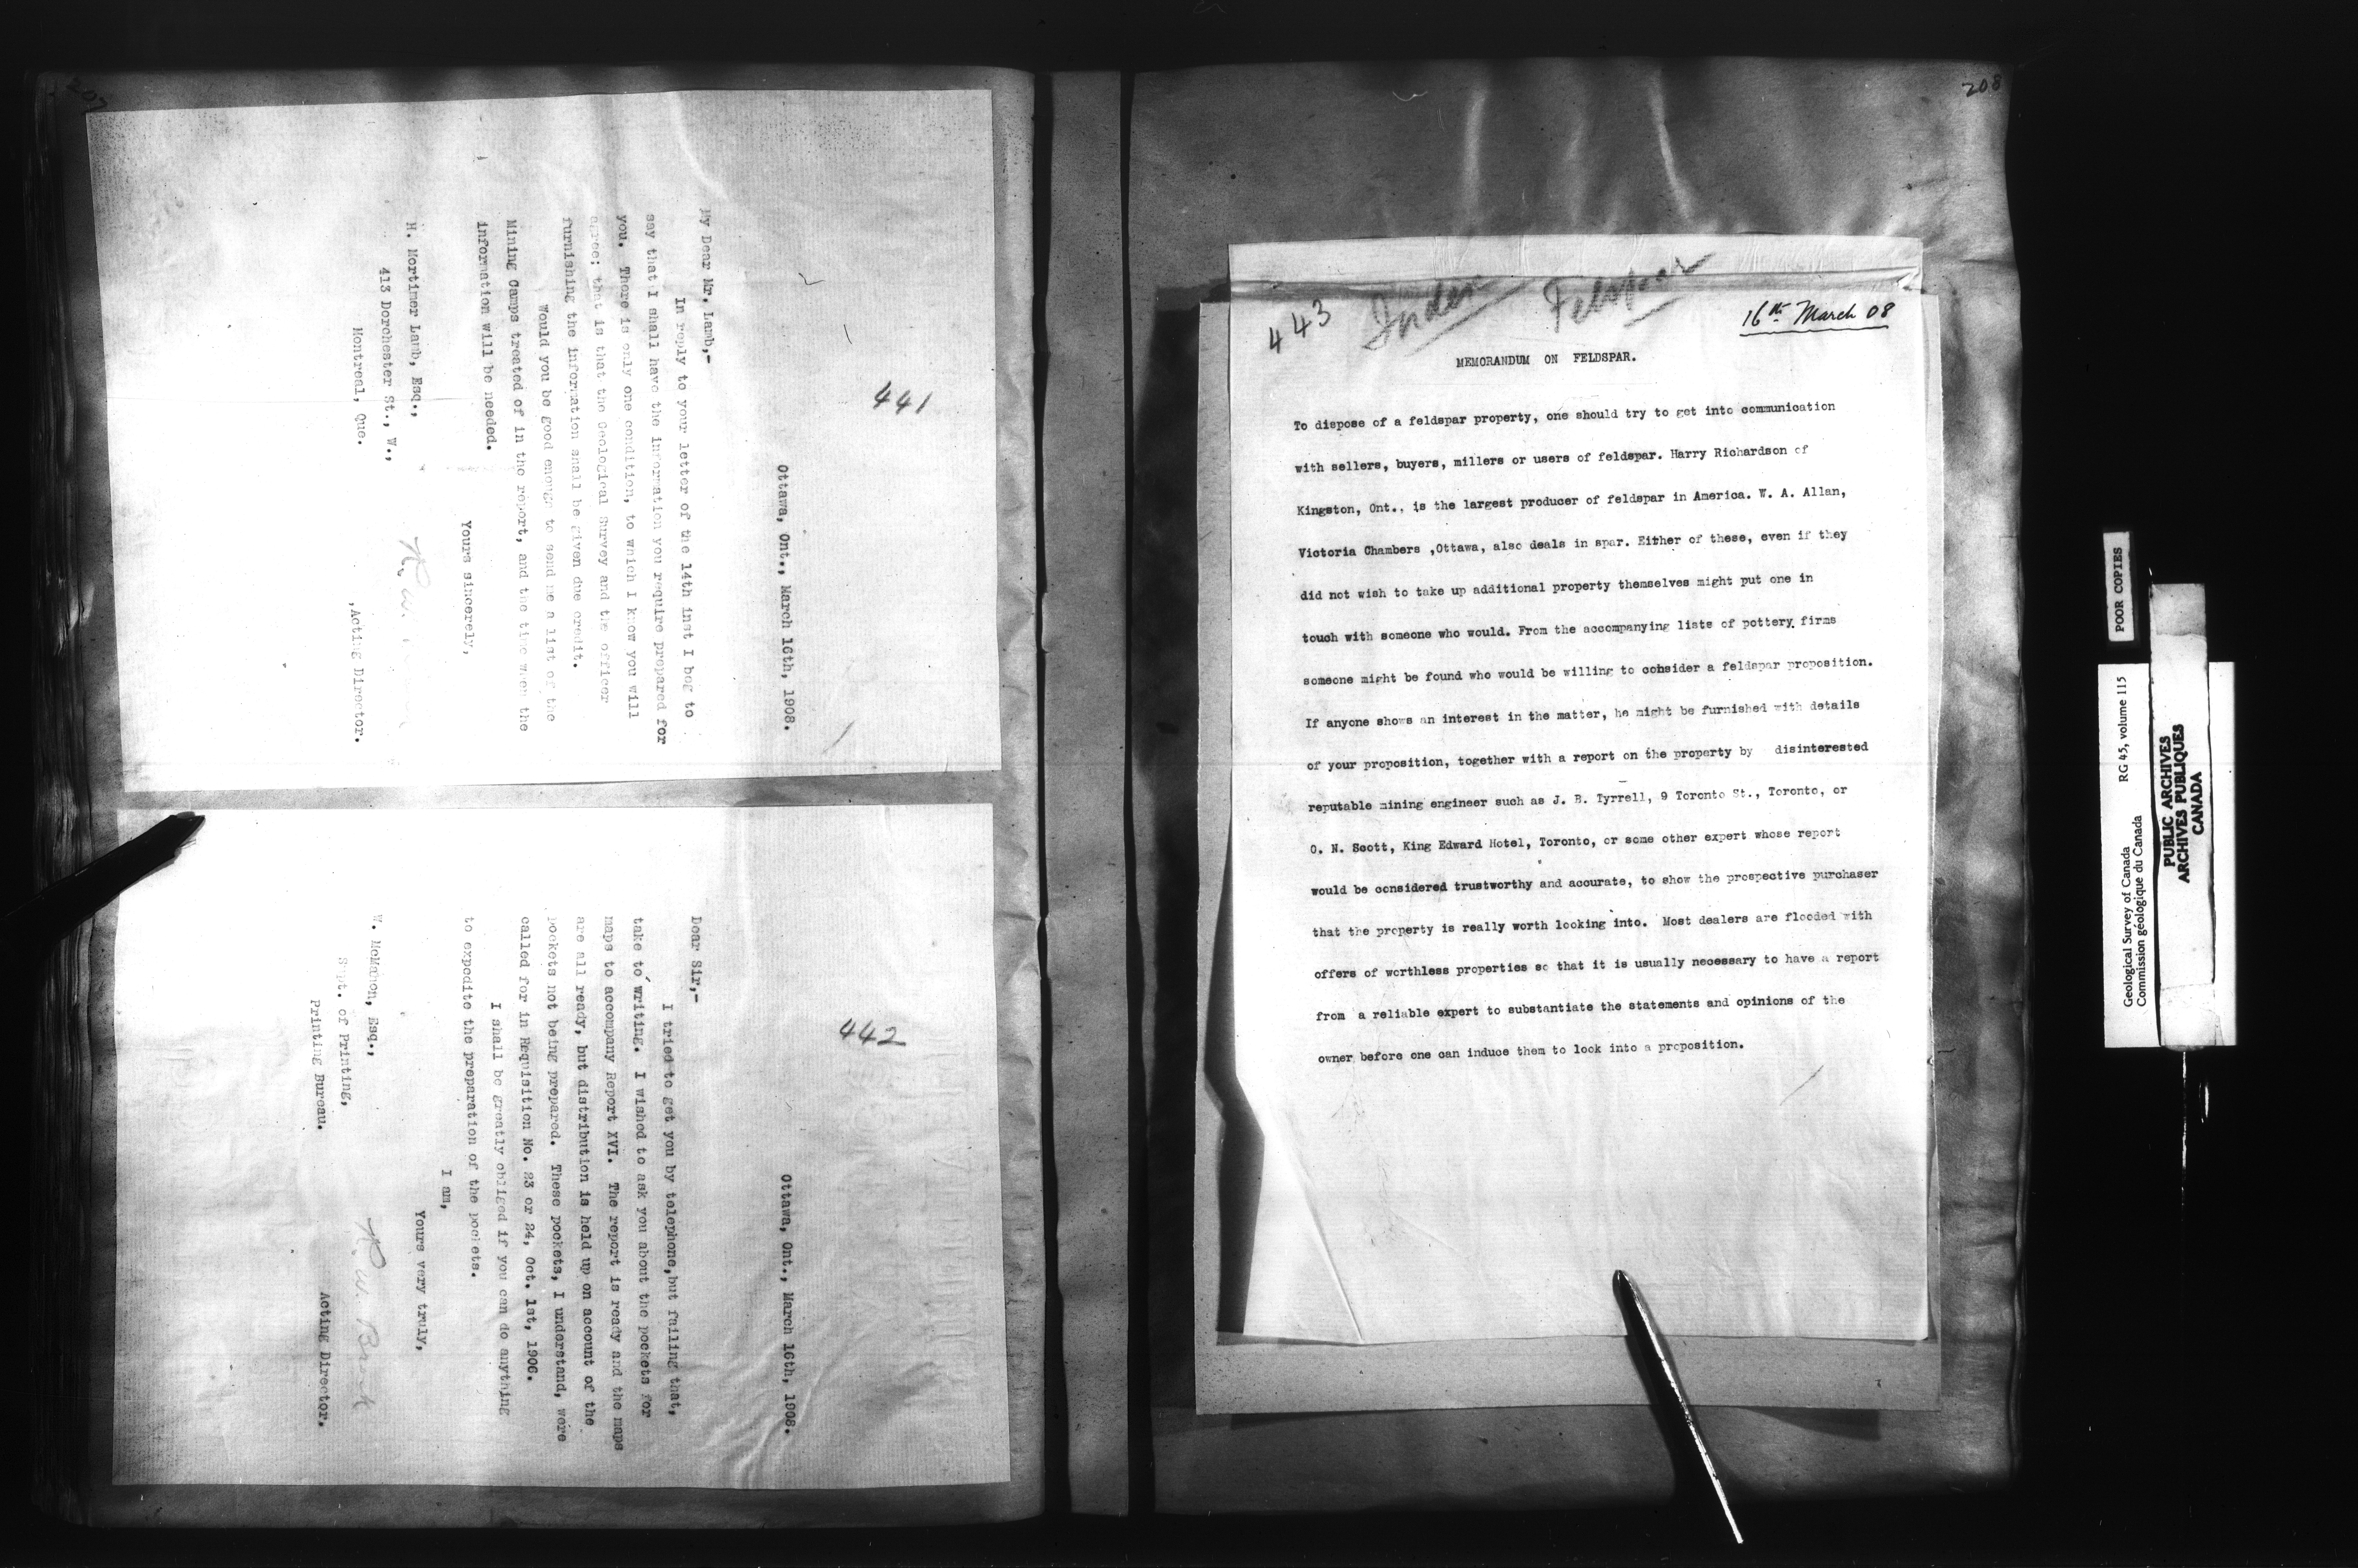 207
441
Ottawa, Ont., March 16th, 1908.
My Dear Mr. Lamb,-
In reply to your letter of the 14th inst I beg to
say that I shall have the information you require prepared for
you. There is only one condition, to which I know you will
agree; that is that the Geological Survey and the officer
furnishing the information shall be given due credit.
Would you be good enough to send me a list of the
Mining Camps treated of in the report, and the time when the
information will be needed.
Yours sincerely,
R. W.
,Acting Director.
H. Mortimer Lamb, Esq.,
413 Dorchester St., W.,
Montreal, Que.
442
Ottawa, Ont., March 16th, 1908.
Dear Sir,-
I tried to get you by telephone,but failing that,
take to writing. I wished to ask you about the pockets for
maps to accompany Report XVI. The report is ready and the maps
are all ready, but distribution is held up on account of the
pockets not being prepared. These pockets, I understand, were
called for in Requisition No. 23 or 24, Oct. 1st, 1906.
I shall be greatly obliged if you can do anything
to expedite the preparation of the pockets.
I am,
Yours very truly,
R. W. Brock
Acting Director.
W. McMahon, Esq.,
Supt. of Printing,
Printing Bureau.
208
443
Index
Felspar
16th March 08
MEMORANDUM ON FELDSPAR.
To dispose of a feldspar property, one should try to get into communication
with sellers, buyers, millers or users of feldspar. Harry Richardson of
Kingston, Ont., is the largest producer of feldspar in America. W. A. Allan,
Victoria Chambers ,Ottawa, also deals in spar. Either of these, even if they
did not wish to take up additional property themselves might put one in
touch with someone who would. From the accompanying lists of pottery firms
someone might be found who would be willing to consider a feldspar proposition.
If anyone shows an interest in the matter, he might be furnished with details
of your proposition, together with a report on the property by disinterested
reputable mining engineer such as J. B. Tyrrell, 9 Toronto St., Toronto, or
O. N. Scott, King Edward Hotel, Toronto, or some other expert whose report
would be considered trustworthy and accurate, to show the prospective purchaser
that the property is really worth looking into. Most dealers are flooded with
offers of worthless properties so that it is usually necessary to have a report
from a reliable expert to substantiate the statements and opinions of the
owner before one can induce them to look into a proposition.
POOR COPIES
Geological Survey of Canada RG 45, volume 115
Commission géologique du Canada
PUBLIC ARCHIVES
ARCHIVES PUBLIQUES
CANADA